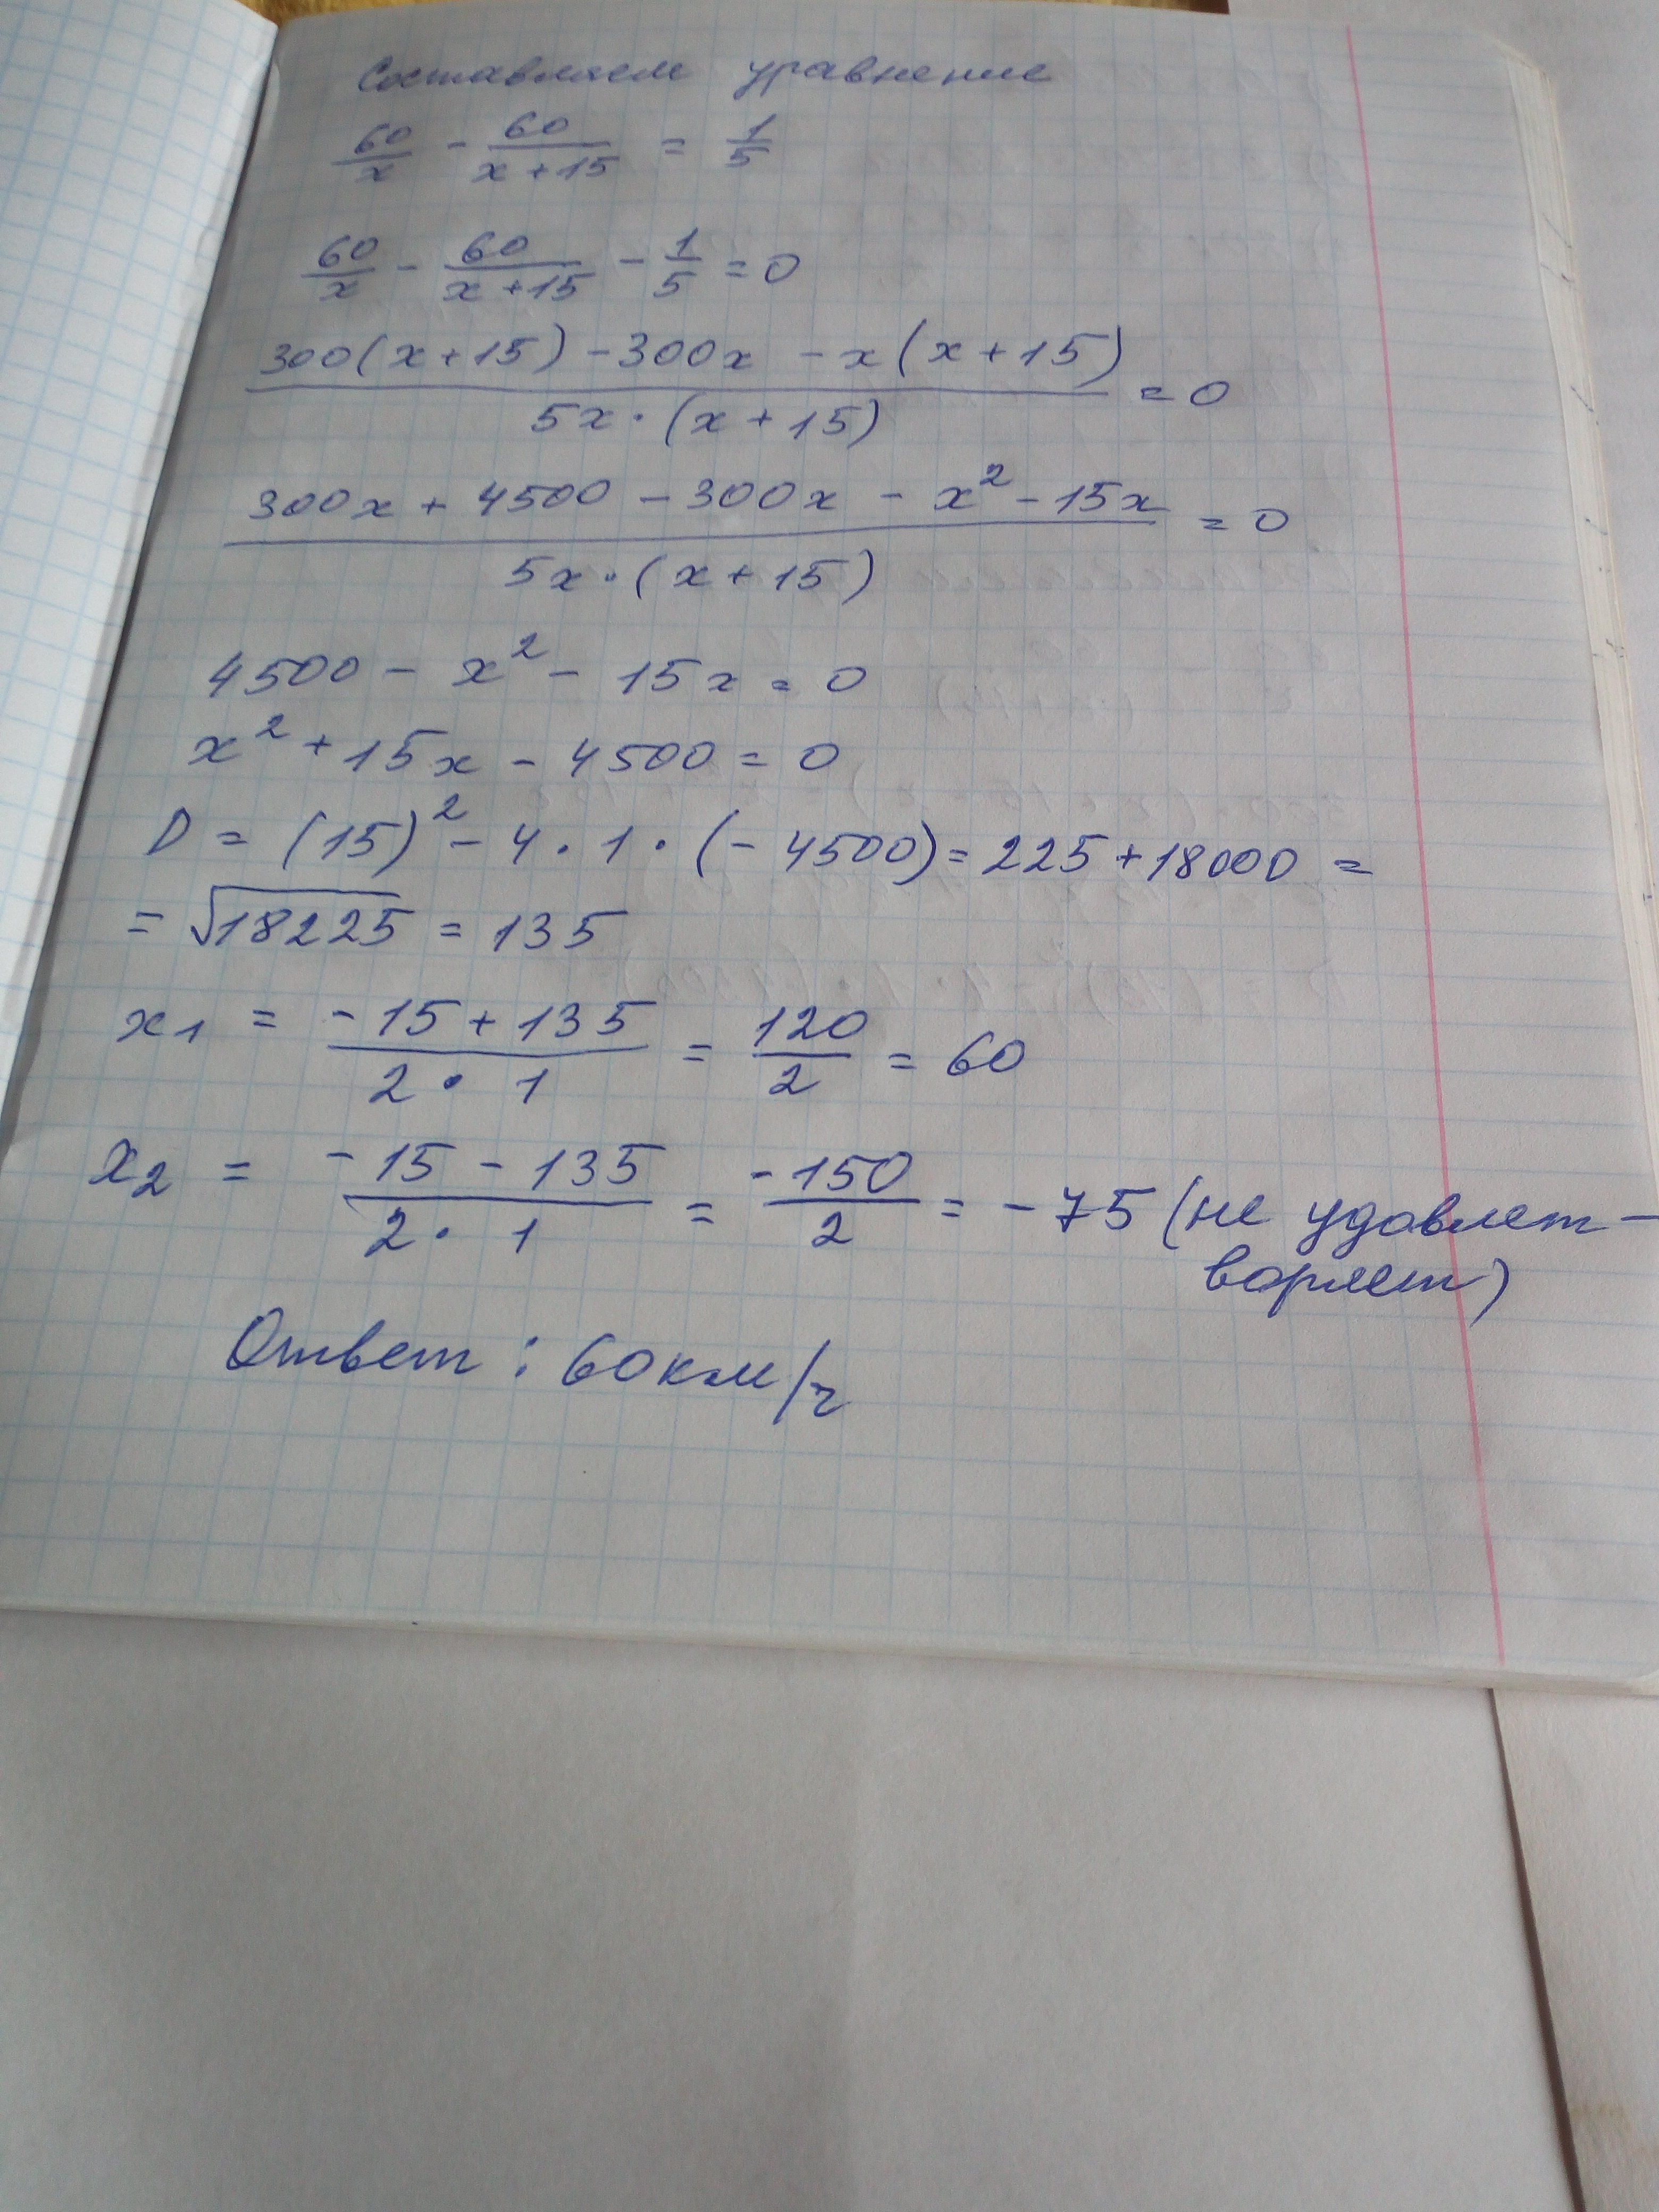 Составляем уравнение
60/x - 60/(x+15) = 1/5
60/x - 60/(x+15) - 1/5 = 0
(300(x+15) - 300x - x(x+15))/(5x·(x+15)) = 0
(300x + 4500 - 300x - x² - 15x)/(5x·(x+15)) = 0
4500 - x² - 15x = 0
x² + 15x - 4500 = 0
D = (15)² - 4·1·(-4500) = 225 + 18000 =
= √18225 = 135
x₁ = (-15 + 135)/(2·1) = 120/2 = 60
x₂ = (-15 - 135)/(2·1) = -150/2 = -75 (не удовлет-
воряет)
Ответ: 60 км/ч